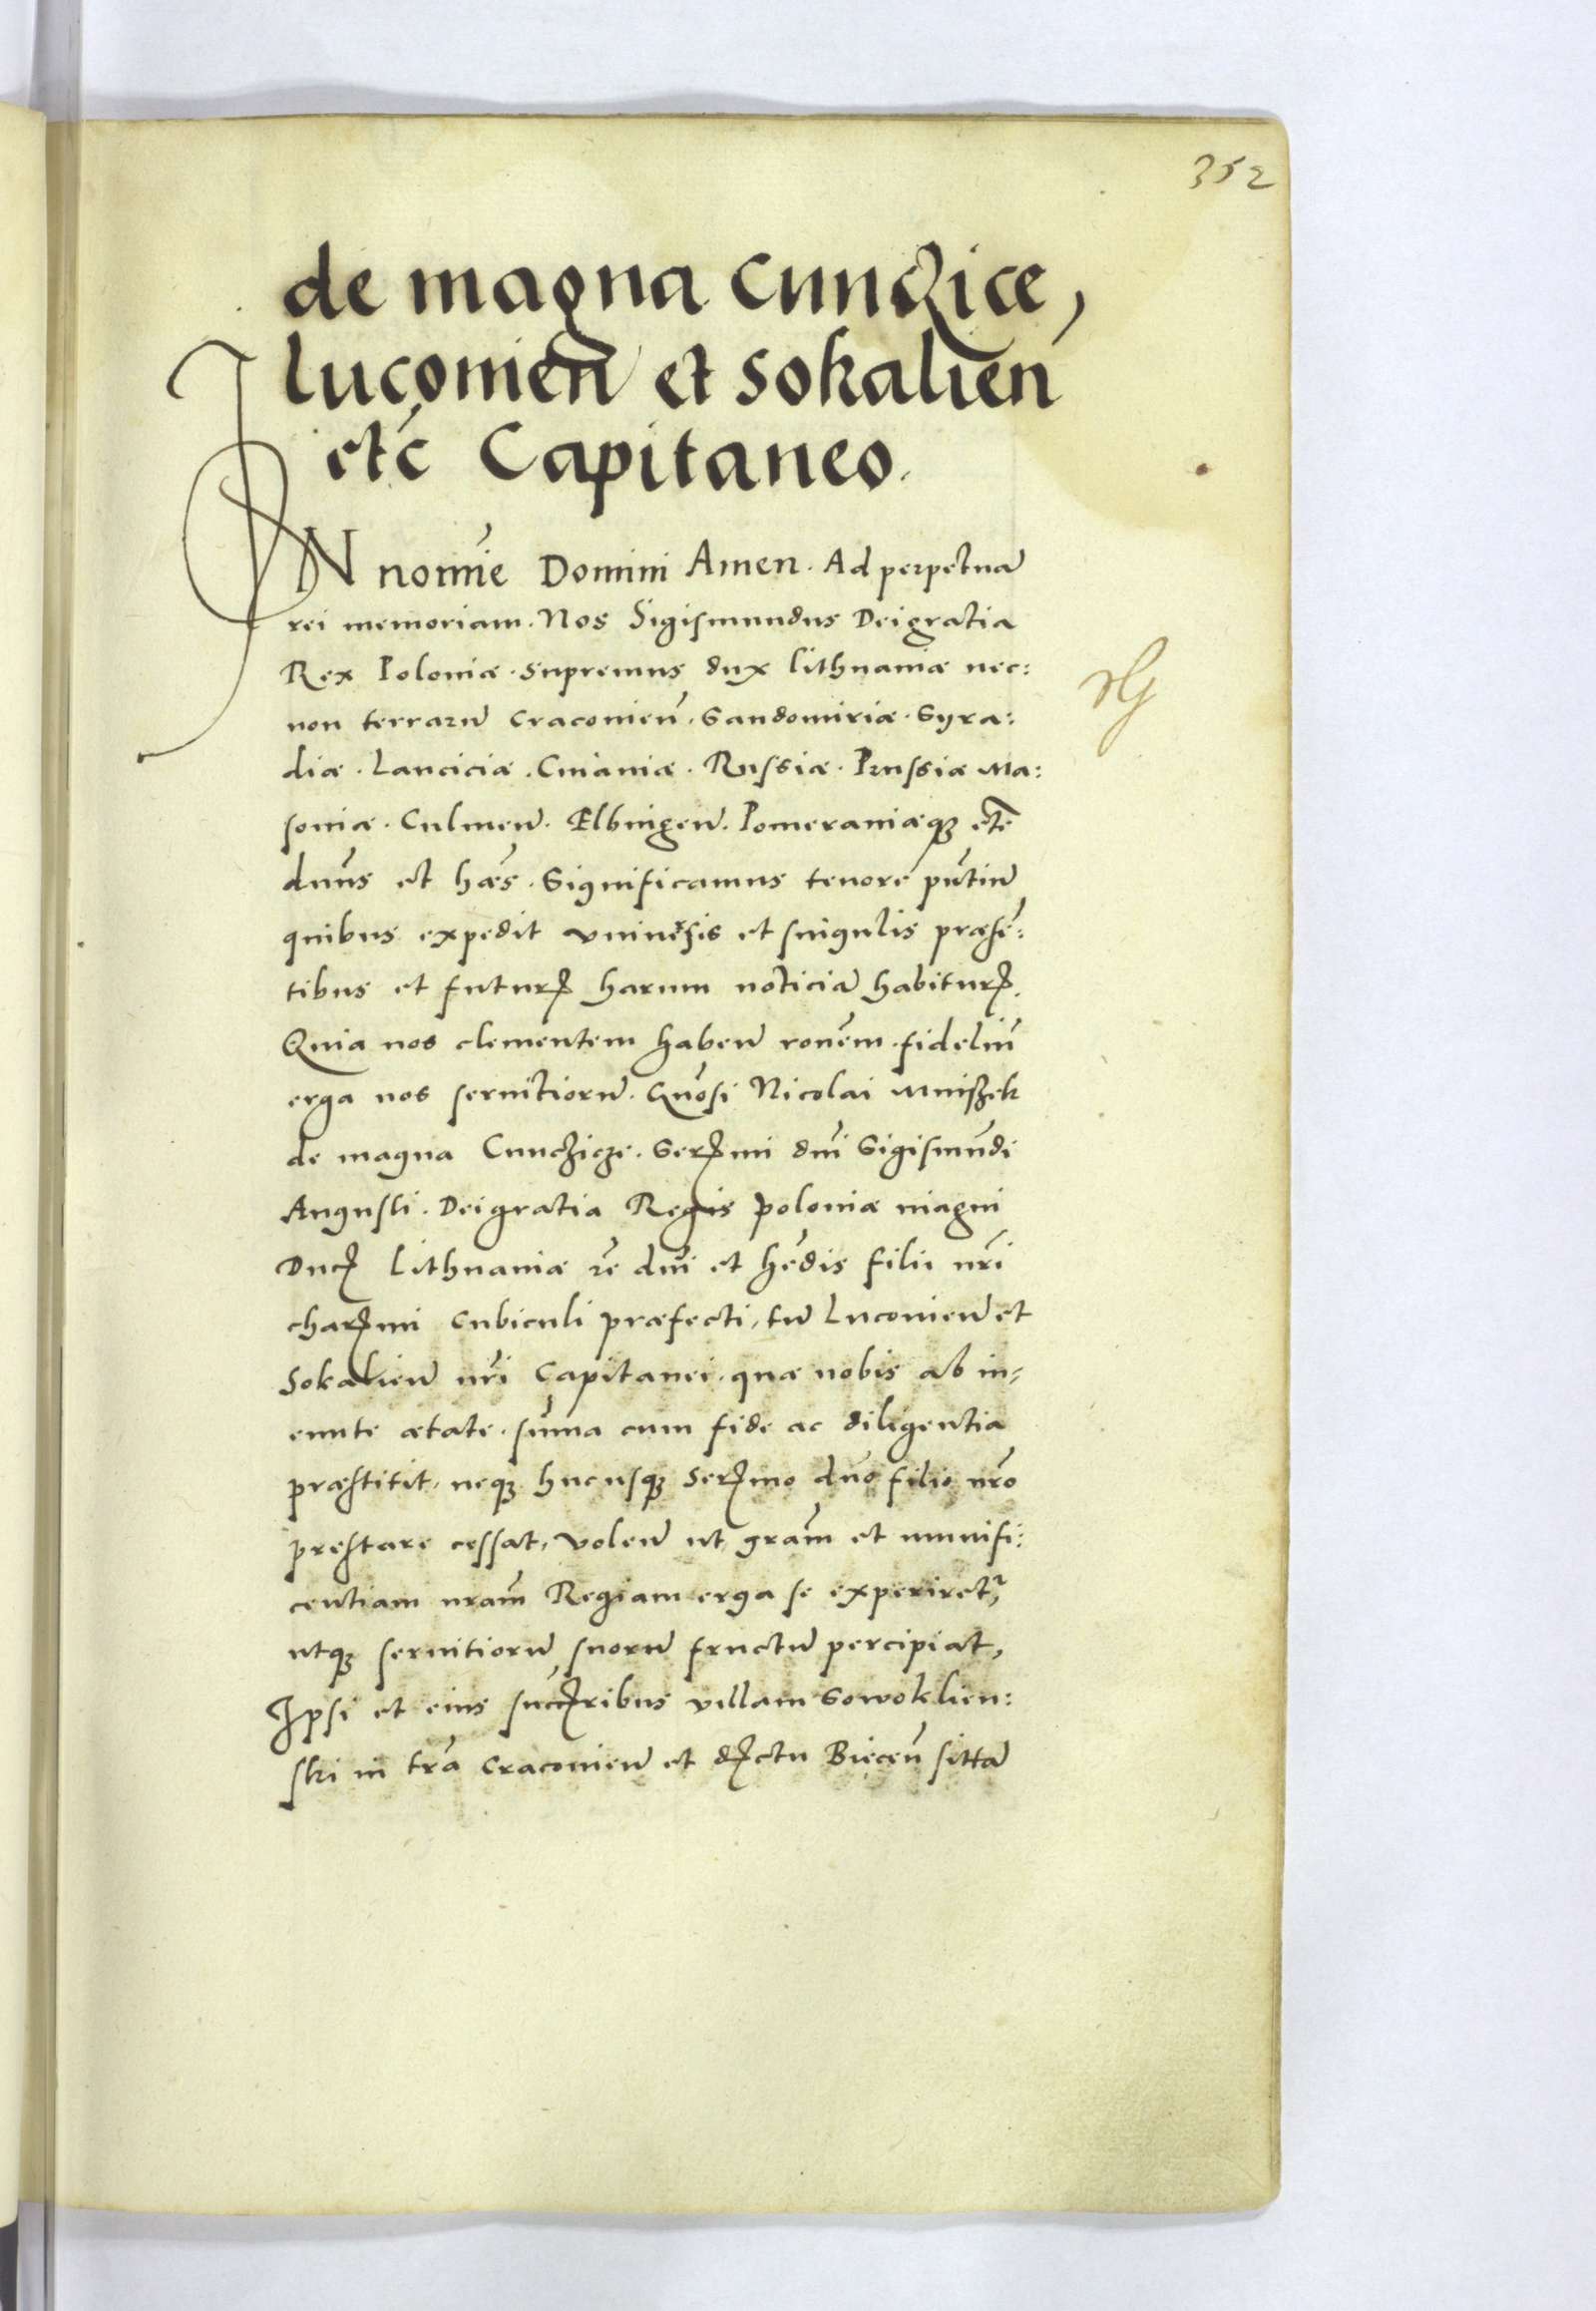 352
de magna Cunczice,
luconień et Sokalień
etć Capitaneo.
IN nomīe Domini Amen. Ad perpetuā
rei memoriam. Nos Sigismundus Dei gratia
Rex Poloniæ. Supremus dux Lithuaniæ nec:
non terrarū Cracouień. Sandomiriæ. Syra:
diæ. Lanciciæ. Cuiauiæ. Russiæ. Prussiæ Ma:
souiæ. Culmeń. Elbingeń. Pomeraniæq₃ etć
dńus et hæs. Significamus tenore pñtiū
quibus expedit vniuersis et singulis præsē:
tibus et futurꝭ harum noticiā habiturꝭ.
Quia nos clementem habeń rońem. fideliū
erga nos seruitiorū. Gńosi Nicolai Mniszek
de magna Cuncziçze. Serꝭmi dńi Sigismūdi
Augusti. Dei gratia Regis poloniæ magni
Ducꝭ Lithuaniæ rē dńi et hēdis filii nr̃i
charꝭmi cubiculi præfecti, tū Luconień et
Sokalień nr̃i Capitanei. quæ nobis ab in,
eunte ætate. sūma cum fide ac diligentia
præstitit, neq₃ hucusq₃ Serꝭmo dńo filio nr̃o
prestare cessat, voleń ut gram̄ et munifi:
centiam nram̄ Regiam erga se experiretr̃
utq₃ seruitiorū suorū fructū percipiat,
Ipsi et eius succꝭribus villam Sowoklien:
ski in tr̃a Cracouień et dꝭctu Bieceń sittā